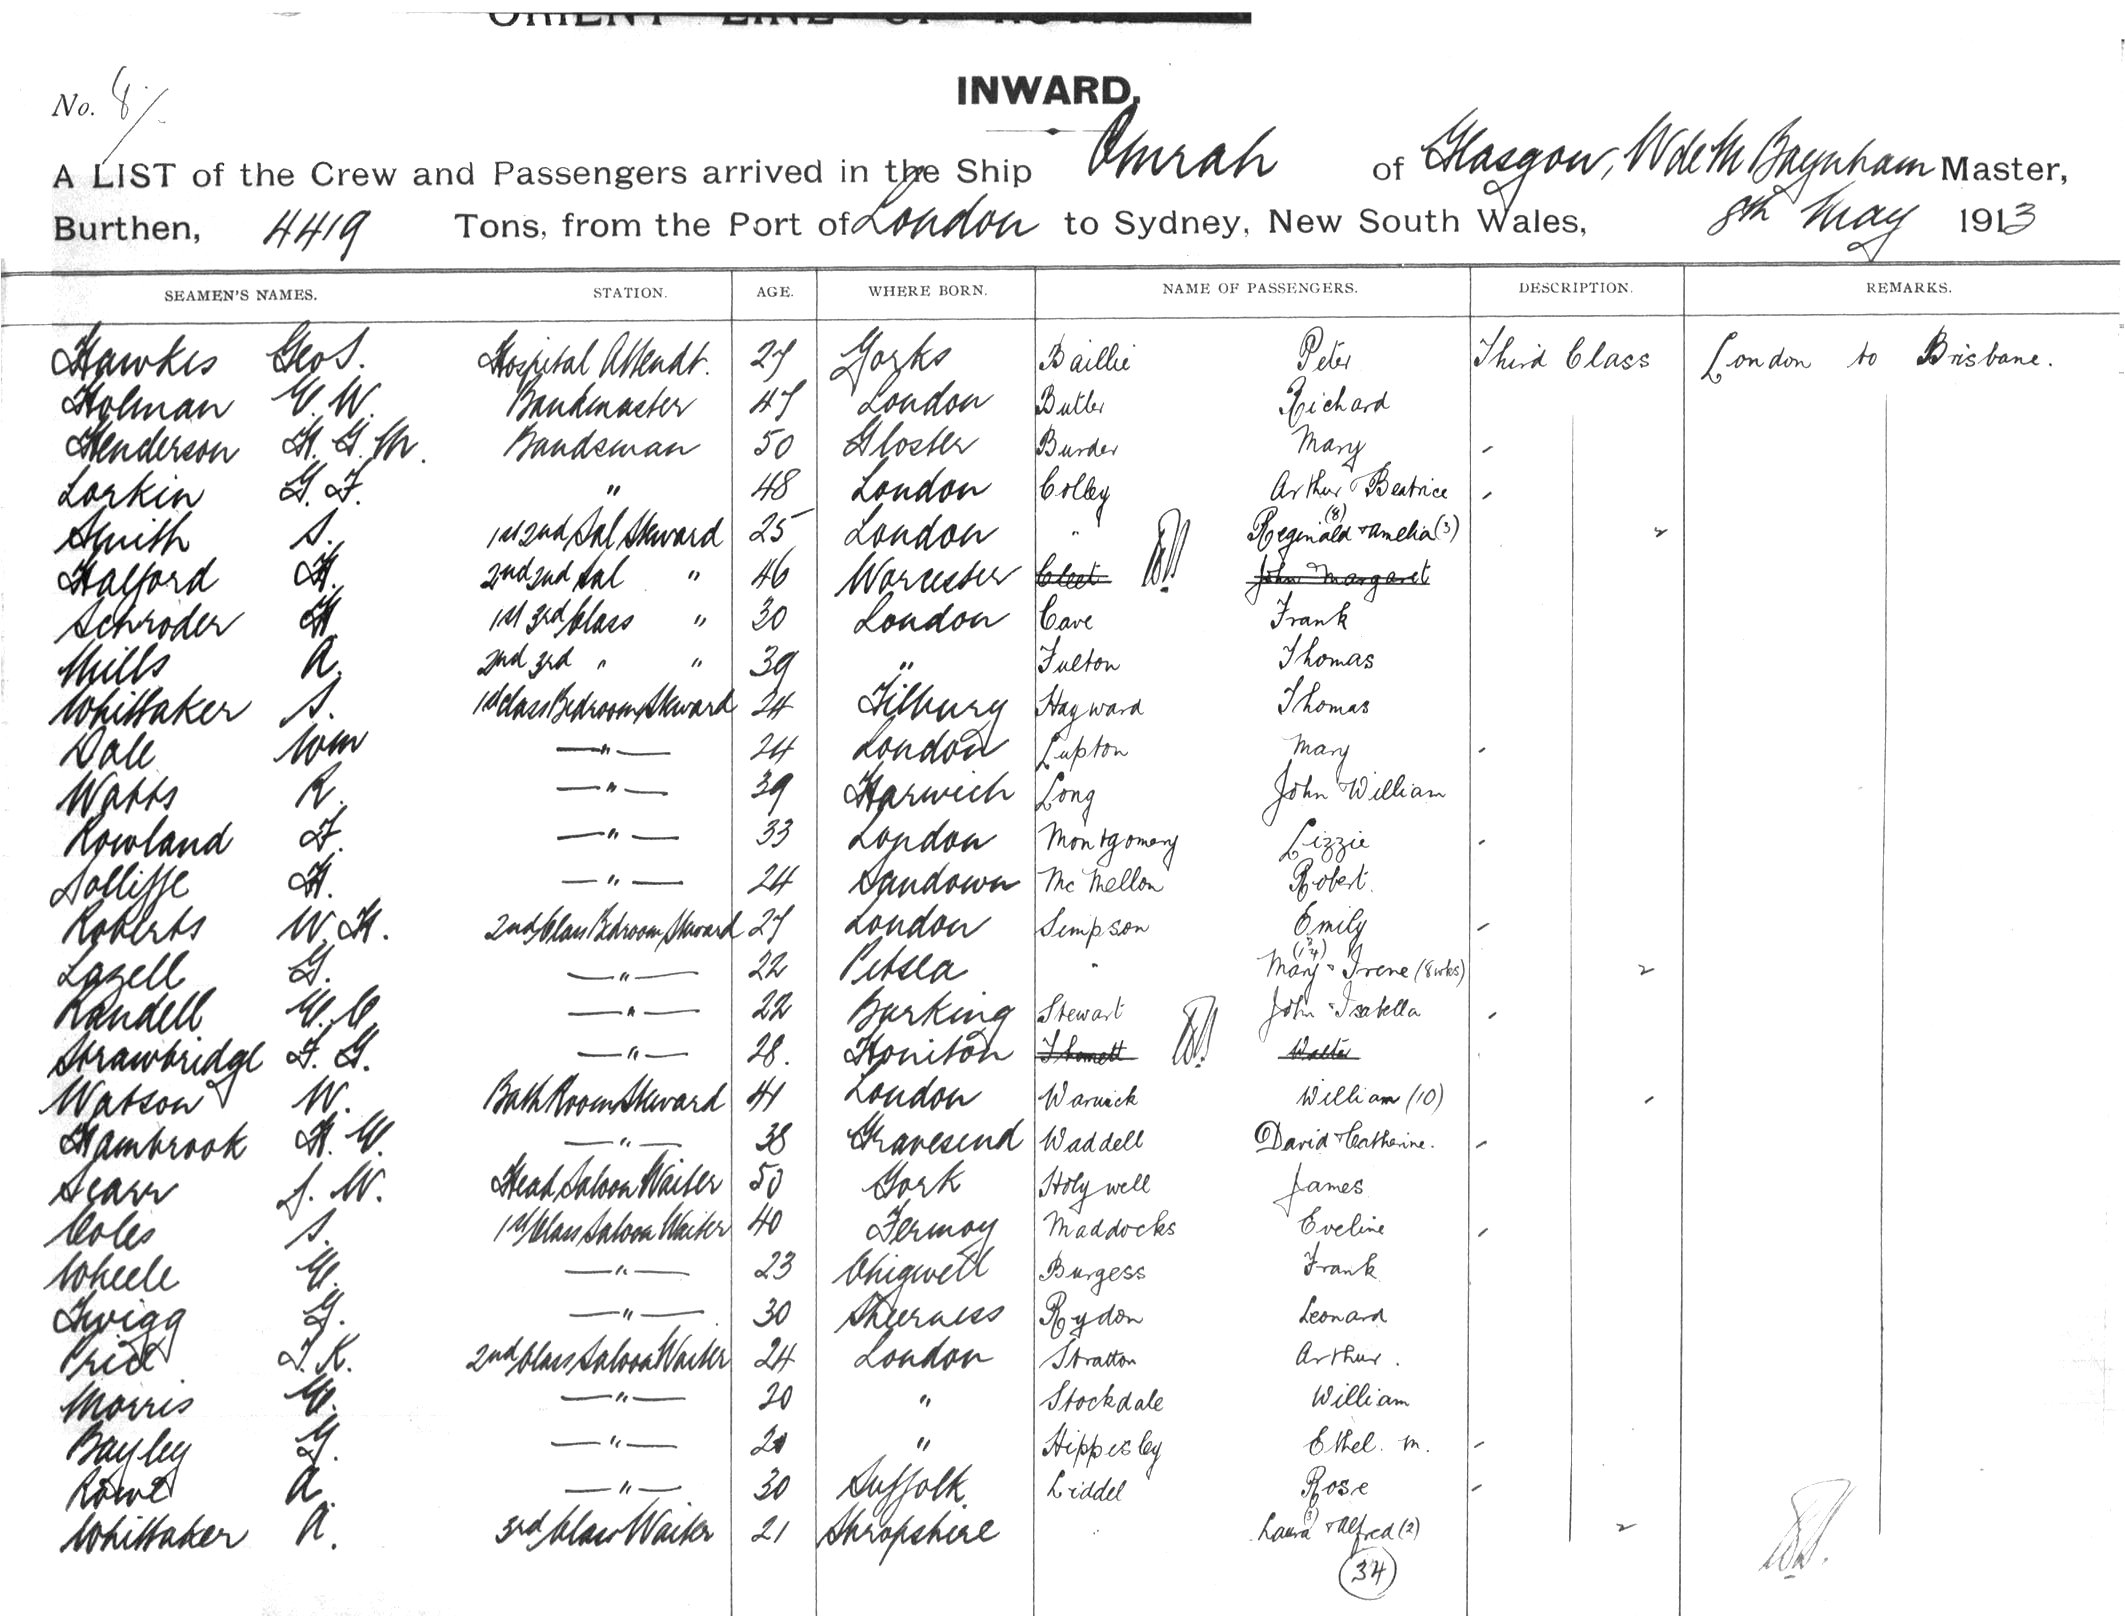 No. 8/.
INWARD.
A LIST of the Crew and Passengers arrived in the Ship Omrah of Glasgow, W de M Baynham Master,
Burthen, 4419 Tons, from the Port of London to Sydney, New South Wales, 8th May 1913
SEAMEN'S NAMES. STATION. AGE. WHERE BORN. NAME OF PASSENGERS. DESCRIPTION. REMARKS.
Hawkes Geo S. Hospital Attendt. 27 Yorks Baillie Peter Third Class London to Brisbane.
Holman E. W. Bandmaster 47 London Butler Richard
Henderson H. G. M. Bandsman 50 Gloster Burder Mary
Larkin G. F. " 48 London Colley Arthur & Beatrice
Smith S. 1st 2nd Sal Steward 25 London " Reginald (8) & Amelia (3) 2
Halford H. 2nd 2nd Sal " 46 Worcester Cleet John Margaret
Schroder H 1st 3rd Class " 30 London Cave Frank
Mills A. 2nd 3rd " " 39 " Fulton Thomas
Whittaker S. 1st Class Bedroom Steward 24 Tilbury Hayward Thomas
Dale Wm —"— 24 London Lupton Mary
Watts R. —"— 39 Harwich Long John William
Rowland F. —"— 33 London Montgomery Lizzie
Jolliffe H. —"— 24 Sandown Mc Mellon Robert.
Roberts W. H. 2nd Class Bedroom Steward 27 London Simpson Emily
Lazell G. —"— 22 Pitsea " Mary & Irene (8 wks) 2
Randell E. C —"— 22 Barking Stewart John & Isabella
Strawbridge F. G. —"— 28. Honiton Thomett Walter
Watson W. Bath Room Steward 41 London Warwick William (10)
Hambrook H. E. —"— 38 Gravesend Waddell David & Catherine.
Scarr J. W. Head Saloon Waiter 50 York Holywell James
Coles S. 1st Class Saloon Waiter 40 Fermoy Maddocks Eveline
Wheele E. —"— 23 Chigwell Burgess Frank
Twigg G. —"— 30 Sheerness Rydon Leonard
Price T. K. 2nd Class Saloon Waiter 24 London Stratton Arthur.
Morris E. —"— 20 " Stockdale William
Bayley G. —"— 20 " Hippesley Ethel. M.
Rowe A. —"— 30 Suffolk Liddel Rose
Whittaker A. 3rd Class Waiter 21 Shropshire " Laura (3) & Alfred (2) 2
34